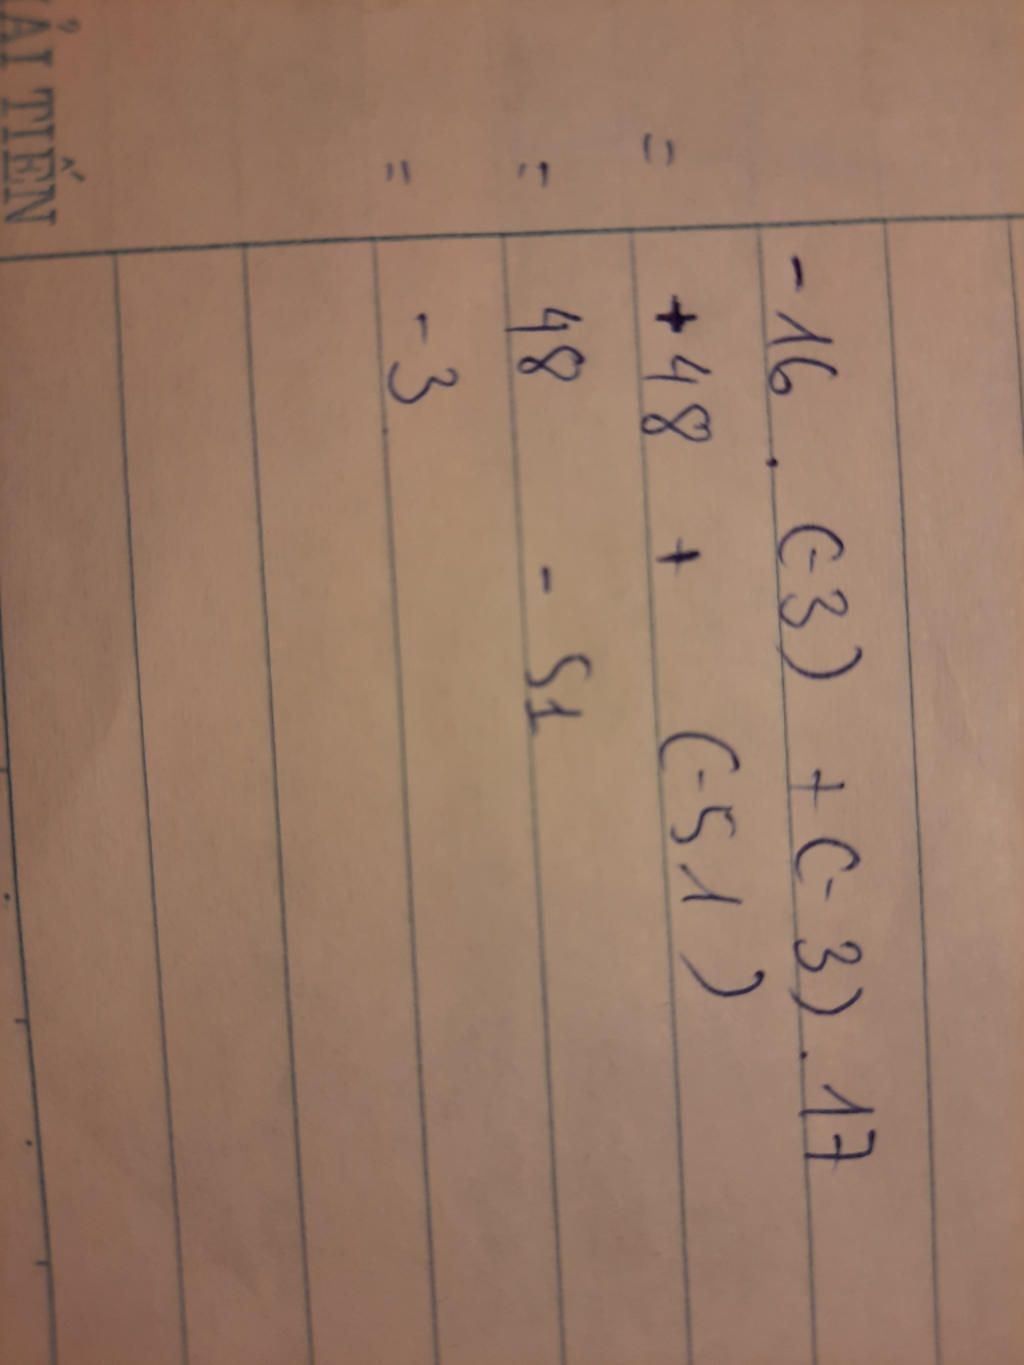 -16 . (-3) + (-3) . 17
= +48 + (-51)
= 48 - 51
= -3
ẢI TIẾN